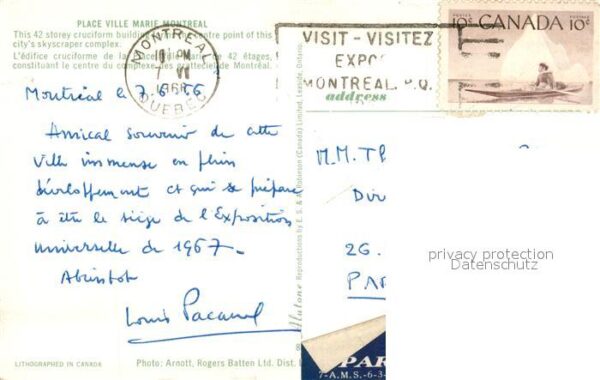 PLACE VILLE MARIE MONTREAL
This 42 storey cruciform building centre point of this
city's skyscraper complex.
L'édifice cruciforme de la 42 étages,
constituant le centre du complexe des gratteciel de Montréal.
MONTREAL
10 PM
7 VI
1966
QUEBEC
VISIT - VISITEZ
EXPO
MONTREAL. P.Q.
POSTES POSTAGE
10¢ CANADA 10¢
address
Montréal le 7.6.66
Amical souvenir de cette
ville immense en plein
développement et qui se prépare
à être le siège de l'Exposition
universelle de 1967.
Abientot
Louis
M.M. TH
DIR
26.
PAR
privacy protection
Datenschutz
Alutone Reproductions by E. S. & A. Robinson (Canada) Limited, Leaside, Ontario.
PAR
7-A.M.S.-6-3-
LITHOGRAPHED IN CANADA
Photo: Arnott, Rogers Batten Ltd. Dist.